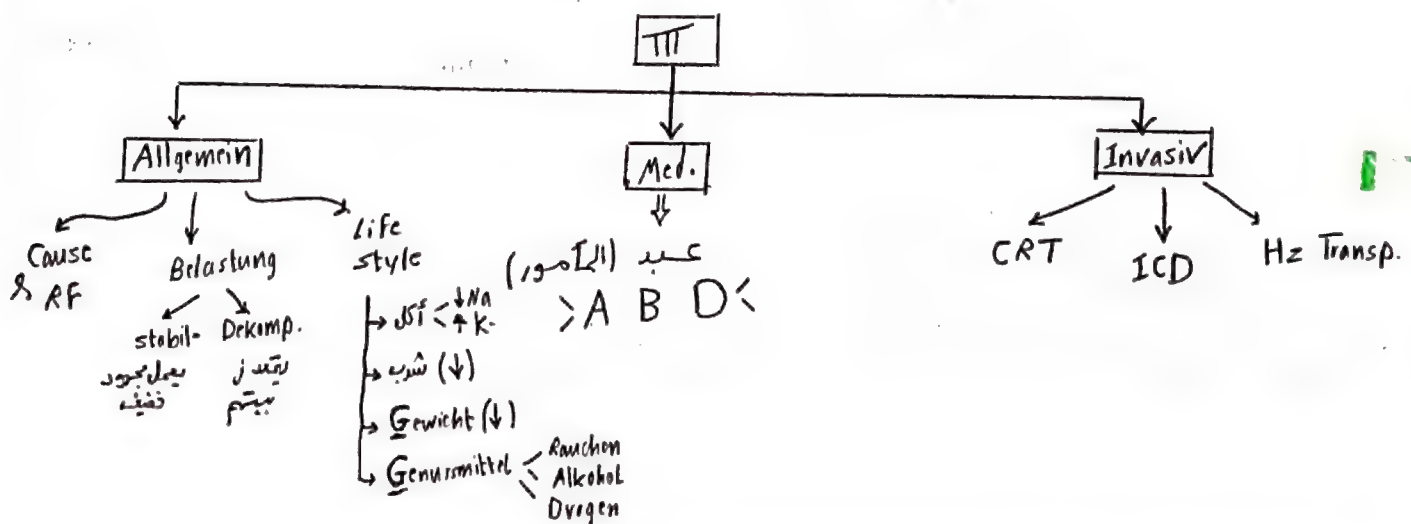 TTT
Allgemein
Med.
Invasiv
Cause
& RF
Belastung
stabil-
يعمل مجهود
خفيف
Dekomp.
Life
style
أكل ↓Na
↑K-
شرب (↓)
Gewicht (↓)
Genussmittel
Rauchen
Alkohol
Drogen
عبد (المأمور)
A B D
CRT
ICD
Hz Transp.